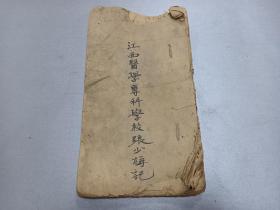 江西醫學專科學校張少梅記